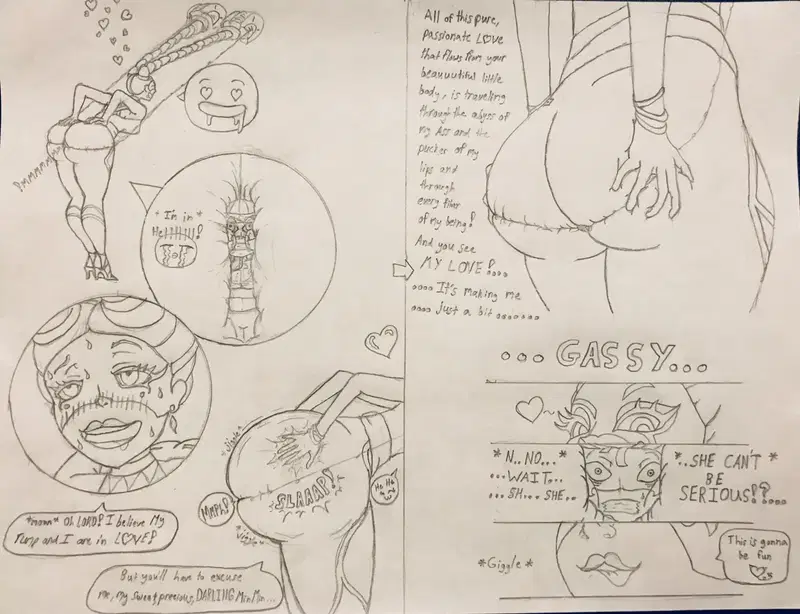 mmmmmmm
*I'm in*
He!!!!!!!!?
*moan* Oh LORD! I believe My
Rump and I are in LOVE!
*Jiggle*
SLAAAP!
MMPH!
*Jiggle*
But you'll have to excuse
me, my sweet precious, DARLING Min Min...
All of this pure,
passionate LOVE
that flows from your
beauuutiful little
body, is traveling
through the abyss of
my Ass and the
pucker of my
lips and
through
every fiber
of my being!
And you see
MY LOVE!....
.... It's making me
.... just a bit .......
... GASSY...
*N..NO...*
...WAIT...
...SH...SHE..
*..SHE CAN'T*
BE
SERIOUS!?...
*Giggle*
This is gonna
be fun